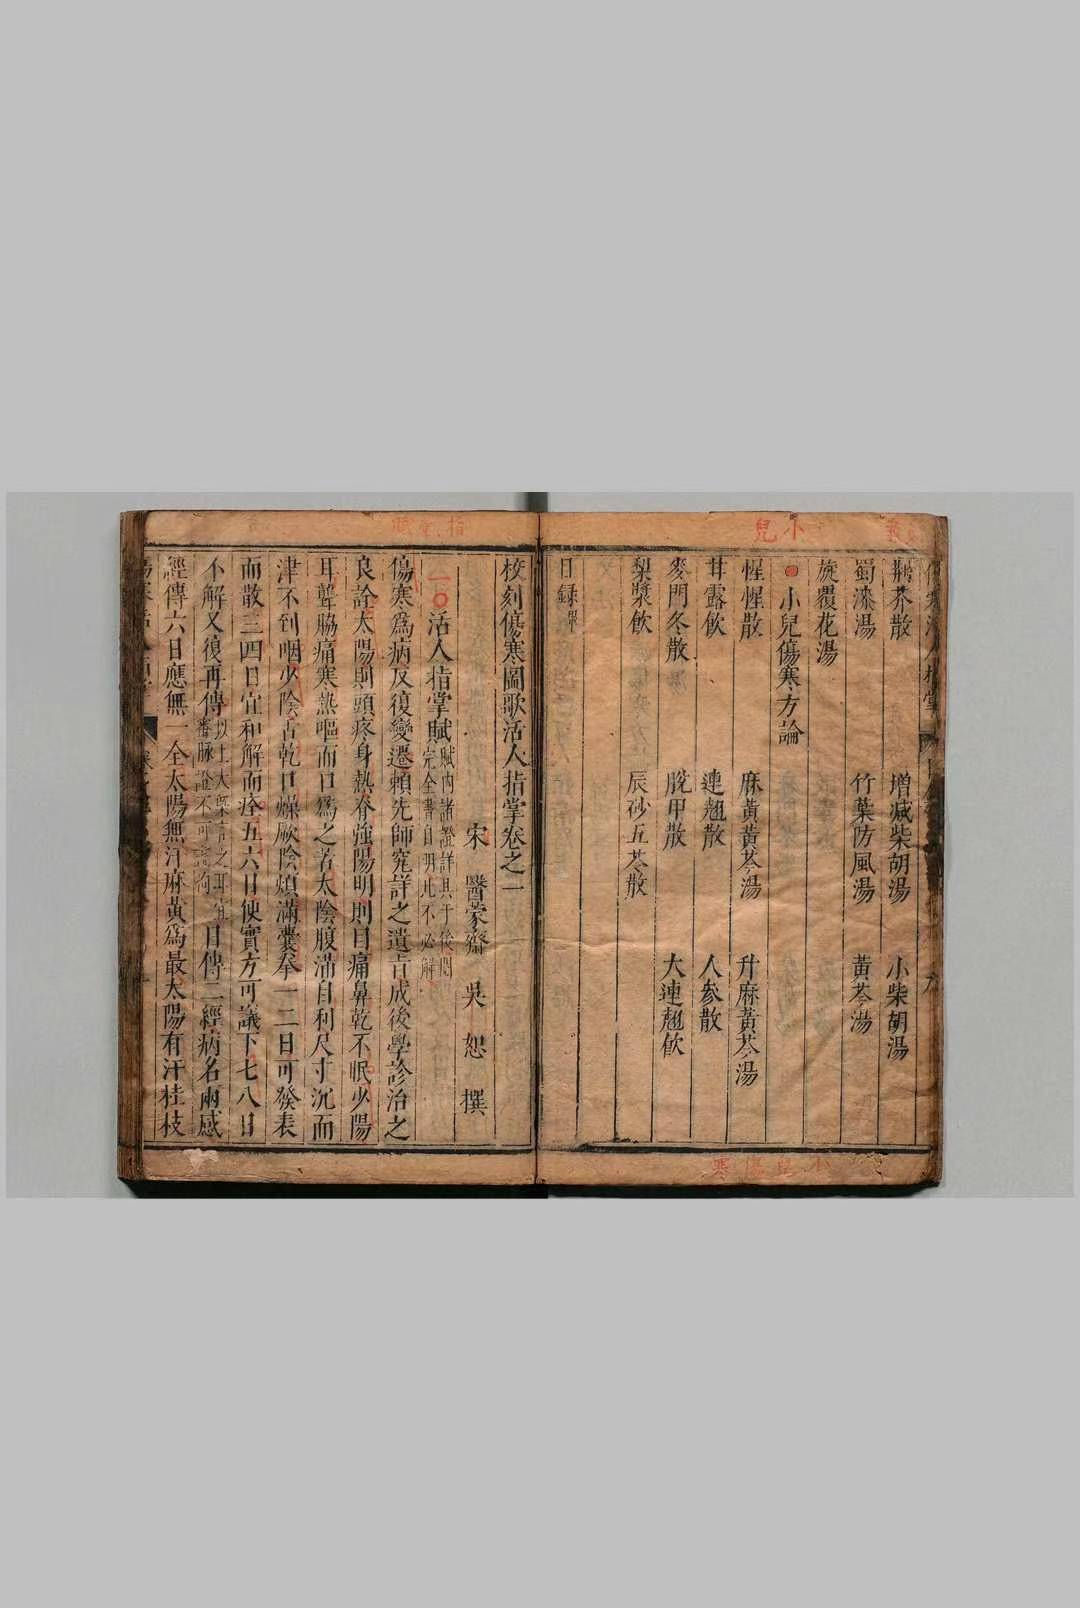 小兒
荆芥散 增減柴胡湯 小柴胡湯
蜀漆湯 竹葉防風湯 黃芩湯
旋覆花湯
小兒傷寒方論
惺惺散 麻黃黃芩湯 升麻黃芩湯
甘露飲 連翹散 人參散
麥門冬散 脫甲散 大連翹飲
梨漿飲 辰砂五苓散
目録畢
校刻傷寒圖歌活人指掌卷之一
宋 醫蒙齋 吳 恕 撰
一〇活人指掌賦
賦内諸證詳具于後問
完全書自明此不必解
傷寒爲病反復變遷賴先師究詳之遺旨成後學診治之
良詮太陽則頭疼身熱脊強陽明則目痛鼻乾不眠少陽
耳聾脇痛寒熱嘔而口爲之苦太陰腹滿自利尺寸沉而
津不到咽少陰舌乾口燥厥陰煩滿囊拳一二日可發表
而散三四日宜和解而痊五六日便實方可議下七八日
不解又復再傳
以上大槩言之耳宜
審脉證不可
日傳二經病名兩感
經傳六日應無一全太陽無汗麻黃爲最太陽有汗桂枝